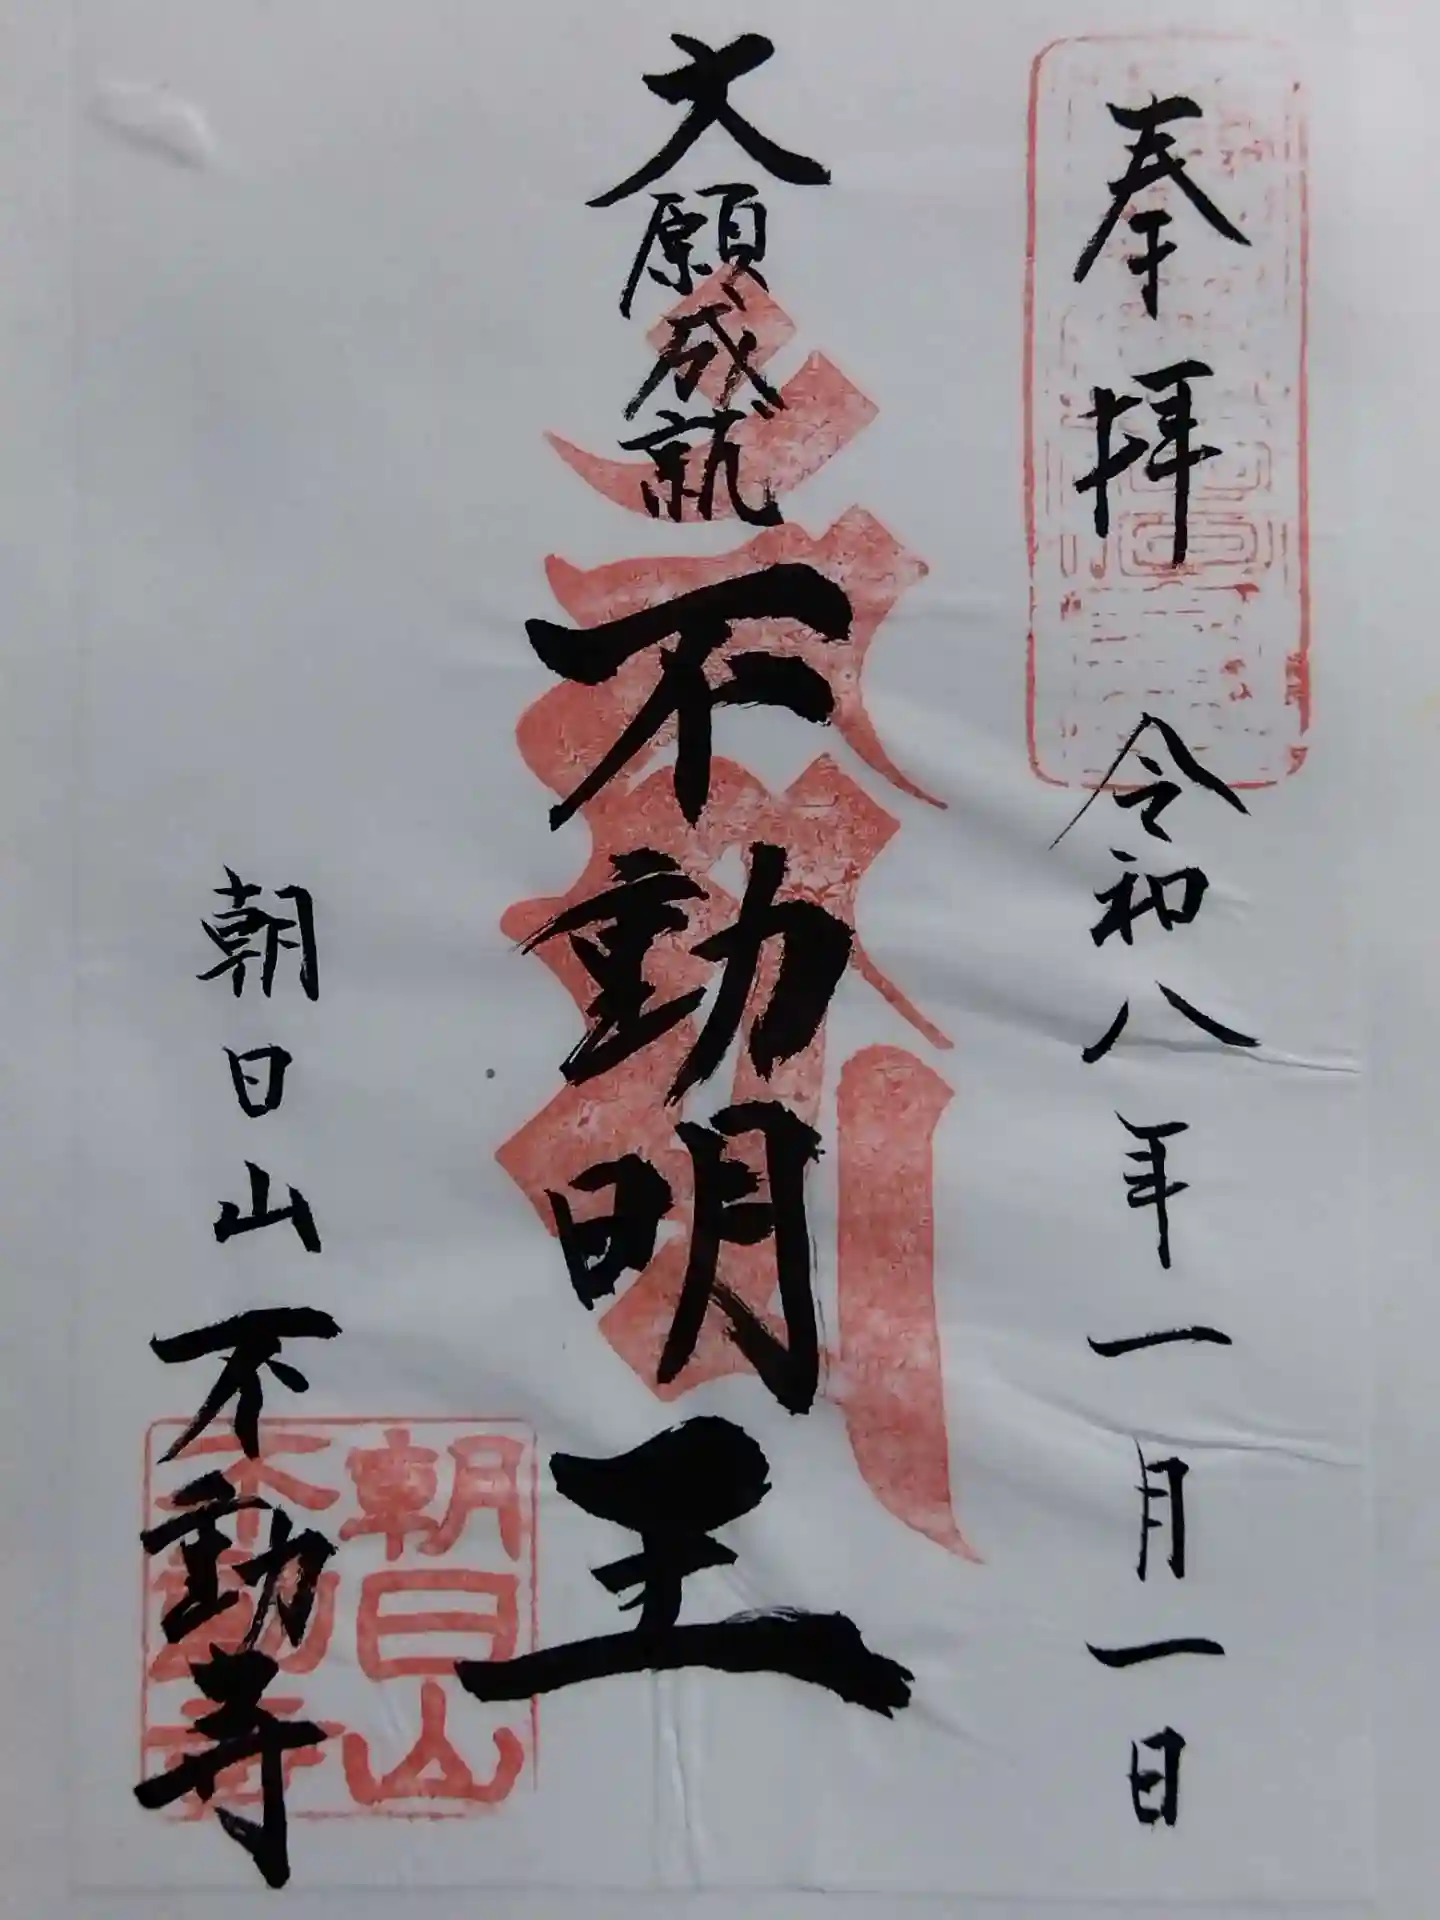 奉拝 令和八年一月一日
大願成就 不動明王
朝日山不動寺
朝日山
不動寺